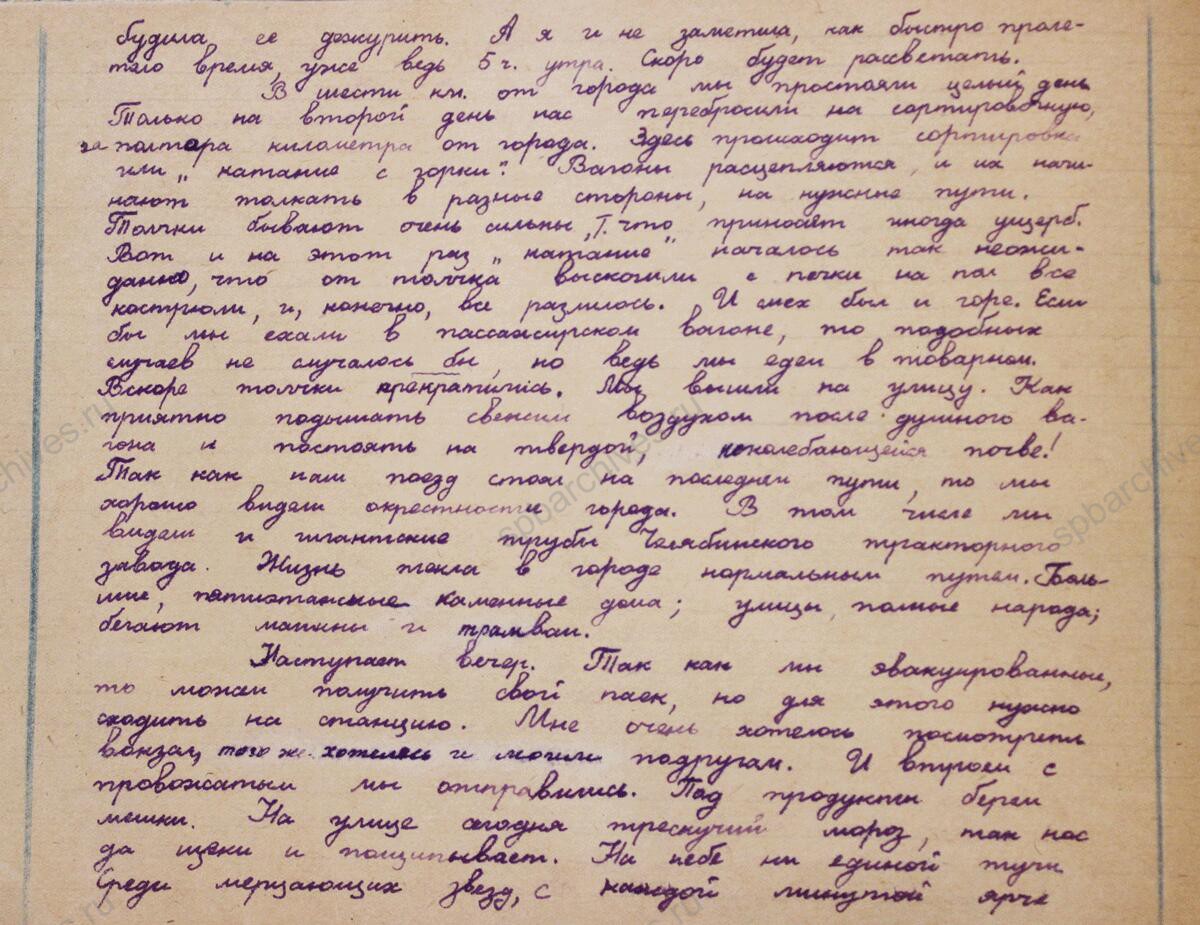 будила, ее дежурить. А я и не заметила, как быстро проле-
тело время, уже ведь 5 ч. утра. Скоро будет рассветать.
В шести км. от города мы простояли целый день
Только на второй день нас перебросили на сортировочную,
за полтара километра от города. Здесь происходит сортировка
или „катание с горки". Вагоны расцепляются, и их начи-
нают толкать в разные стороны, на нужные пути.
Толчки бывают очень сильны, т. что приносят иногда ущерб.
Вот и на этот раз „катание" началось так неожи-
данно, что от толчка выскочили с печки на пол все
кострюли, и, конечно, все разлилось. И смех был и горе. Если
бы мы ехали в пассажирском вагоне, то подобных
случаев не случалось бы, но ведь мы едем в товарном.
Вскоре толчки прекратились. Мы вышли на улицу. Как
приятно подышать свежим воздухом после душного ва-
гона и постоять на твердой, неколебающейся почве!
Так как наш поезд стоял на последнем пути, то мы
хорошо видели окрестности города. В том числе мы
видели и гигантские трубы Челябинского тракторного
завода. Жизнь текла в городе нормальным путем. Боль-
шие, пятиэтажные каменные дома; улицы, полные народа;
бегают машины и трамваи.
Наступает вечер. Так как мы эвакуированные,
то можем получить свой паек, но для этого нужно
сходить на станцию. Мне очень хотелось посмотреть
вокзал, того же хотелось и моим подругам. И втроем с
провожатым мы отправились. Под продукты берем
мешки. На улице сегодня трескучий мороз, так нос
да щеки и пощипывает. На небе ни единой тучи
Среди мерцающих звезд, с каждой минутой ярче
spbarchives.ru
spbarchives.ru